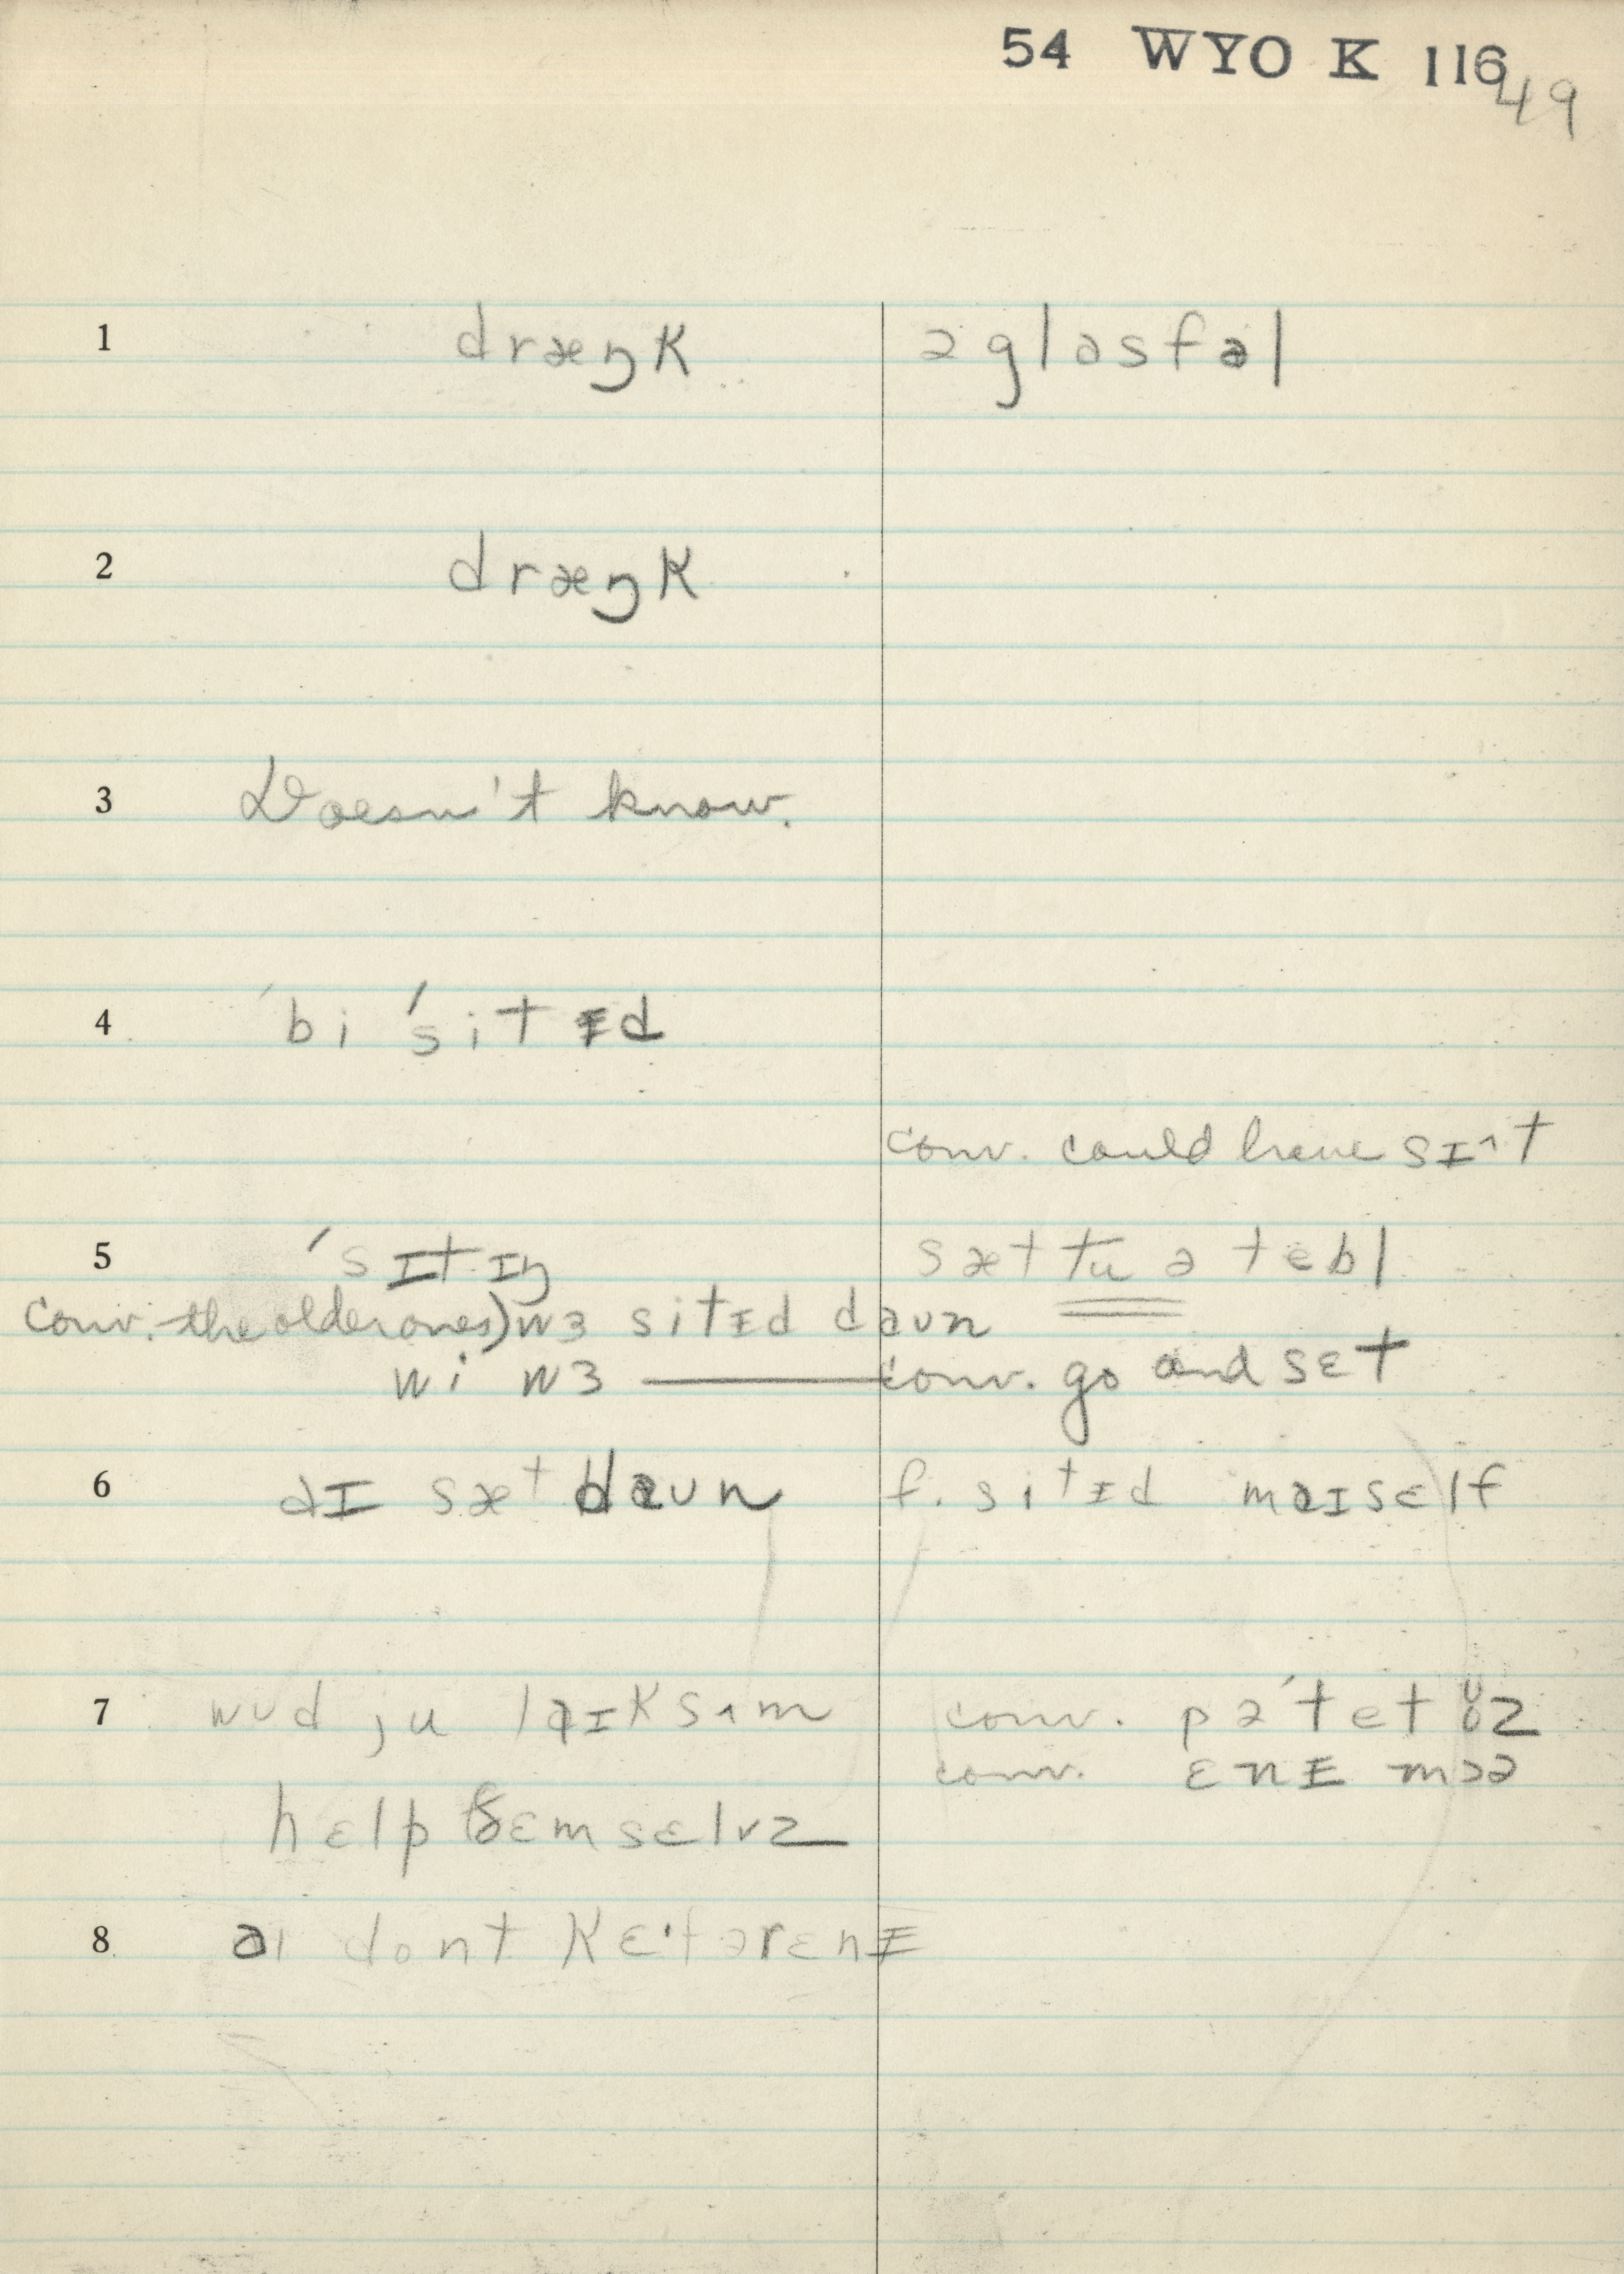 54 WYO K 116
49
1 dræŋk ə glasfəl
2 dræŋk
3 Doesn't know.
4 bi ˈsitɪd
conv. could have sɪ^t
5 ˈsɪtɪŋ sæt tu ə tebl
conv. the older ones) wɜ sitɪd daʊn
wi wɜ ——— conv. go and sɛt
6 aɪ sæt daʊn f. sitɪd maɪsɛlf
7 wʊd ju laɪk sʌm conv. pəˈtet z
conv. ɛnɪ mɔə
hɛlp ðɛmsɛlvz
8 aɪ dont kɛˑ fər ɛnɪ